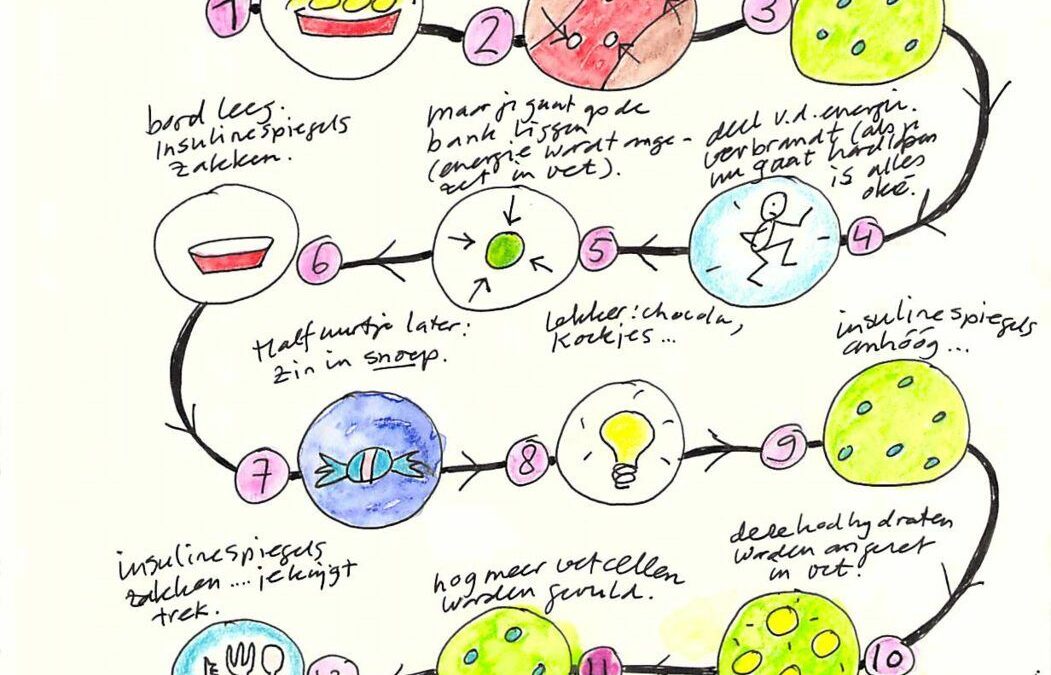 1
2
3
bord leeg.
Insulinespiegels
zakken.
maar jij gaat op de
bank liggen
(energie wordt omge-
zet in vet).
deel v.d. energie
verbrandt (als je
nu gaat hardlopen
is alles
oké.
6
5
4
Half uurtje later:
zin in snoep.
lekker: chocola,
koekjes...
insulinespiegels
omhóóg...
7
8
9
insulinespiegels
zakken .... je krijgt
trek.
nog meer vetcellen
worden gevuld.
deze koolhydraten
worden omgezet
in vet.
12
11
10